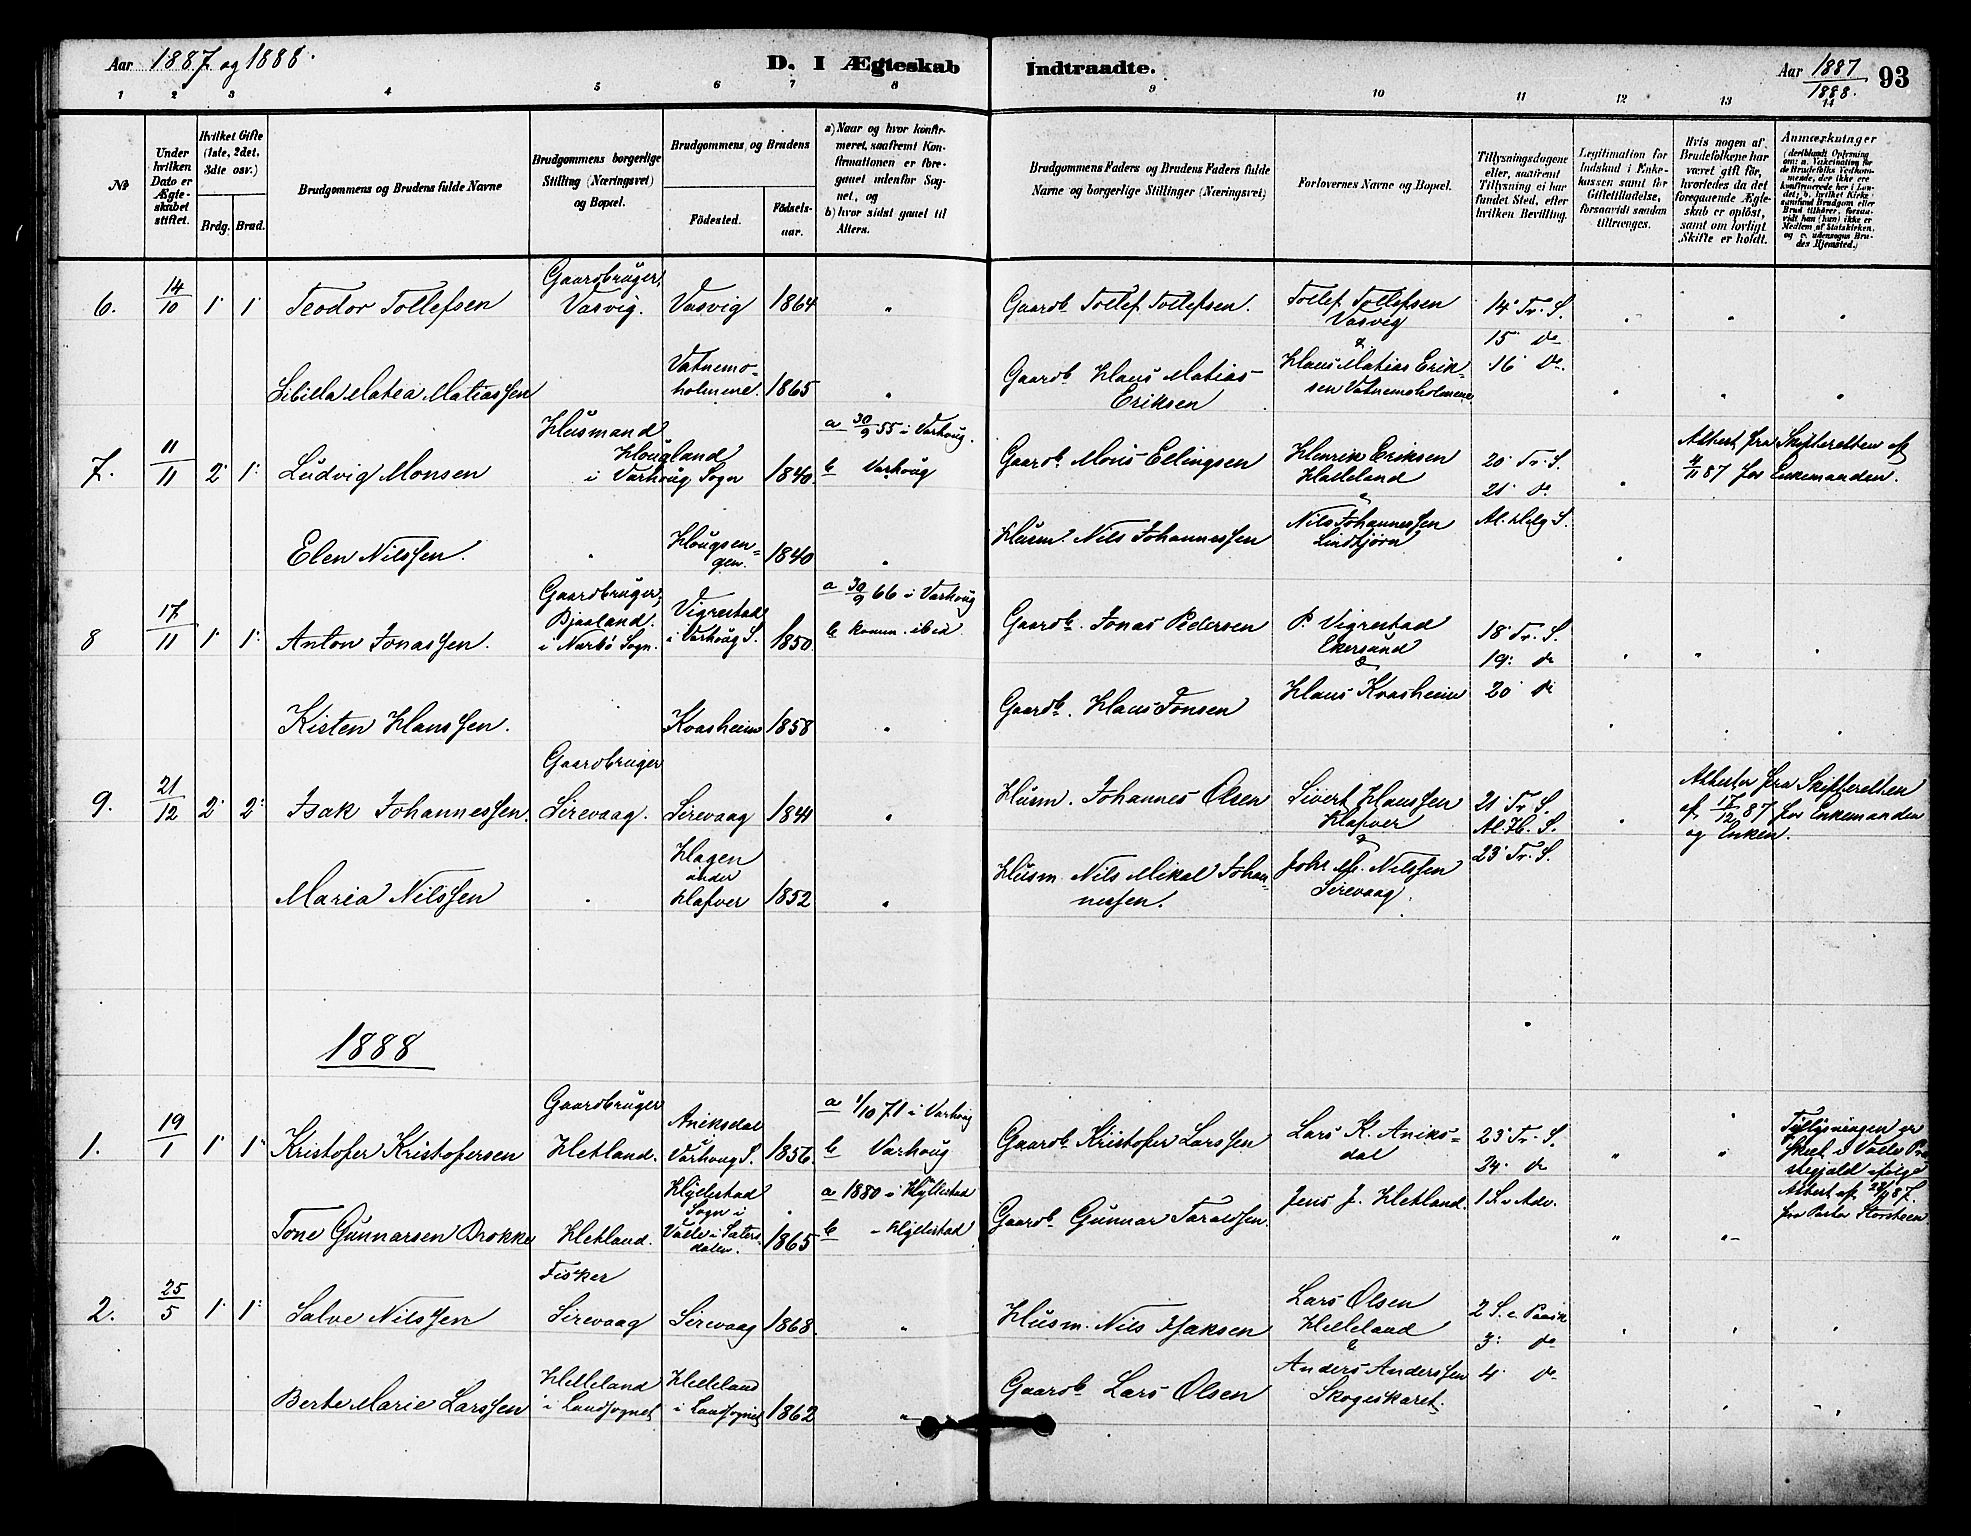 Aar 1887 og 1888.
D. I Ægteskab Indtraadte.
Aar 1887/1888.
93
1 2 3 4 5 6 7 8 9 10 11 12 13 14
№
Under hvilken Dato er Ægteskabet stiftet.
Hvilket Gifte (1ste, 2det, 3die osv.)
Brdg. Brud.
Brudgommens og Brudens fulde Navne
Brudgommens borgerlige Stilling (Næringsvei) og Bopæl.
Brudgommens, og Brudens
Födested.
Födselsaar.
a) Naar og hvor konfirmeret, saafremt Konfirmationen er foregaaet udenfor Sognet, og
b) hvor sidst gaaet til Alters.
Brudgommens Faders og Brudens Faders fulde Navne og borgerlige Stillinger (Næringsvei)
Forlovernes Navne og Bopæl.
Tillysningsdagene eller, saafremt Tillysning ei har fundet Sted, efter hvilken Bevilling.
Legitimation for Indskud i Enkekassen samt for Giftetilladelse, forsaavidt saadan tiltrænges.
Hvis nogen af Brudefolkene har været gift för, hvorledes da det foregaaende Ægteskab er oplöst, samt om lovligt Skifte er holdt.
Anmærkninger
(deriblandt Oplysning om: a. Vakcination for de Brudefolks Vedkommende, der ikke ere konfirmerede her i Landet; b. hvilket Kirkesamfund Brudgom eller Brud tilhörer, forsaavidt han (hun) ikke er Medlem af Statskirken, og c. udensogns Brudes Hjemsted.)
6. 14/10 1. 1. Teodor Tollefsen
Gaardbruger, Vasvig.
Vasvig 1864 "
Gaardb. Tollef Tollefsen.
Tollef Tollefsen Vasvig &
14. Tr. S.
15. do
16. do.
Sibilla Matea Matiassen
Vatnemoholmene 1865 "
Gaardb. Klaus Matias Eriksen
Klaus Matias Eriksen Vatnemoholmene
7. 11/11 2. 1. Ludvig Monsen
Husmand Hougland i Varhoug Sogn 1840.
a 30/9 55 i Varhoug.
b Varhoug
Gaardb. Mons Ellingsen
Henrik Eriksen Halleland &
20. Tr. S.
21. do
Al. Helg S.
Attest fra Skifteretten af 4/11 87 for Enkemanden.
Elen Nilssen. "
Hougsengen. 1840 "
Husm. Nils Johannessen
Nils Johannessen Lindtjørn
8 17/11 1. 1. Anton Jonassen.
Gaardbruger, Bjaaland. i Narbö Sogn.
Vigrestad i Varhoug S. 1850.
a 30/9 66 i Varhoug
b komm. ibid.
Gaardb. Jonas Pedersen
P. Vigrestad Ekersund &
18. Tr. S.
19. do
20 do
Kisten Hanssen.
Kvasheim 1858 "
Gaardb. Hans Tonsen
Hans Kvasheim
9. 21/12 2. 2. Isak Johannessen.
Gaardbruger Sirevaag.
Sirevaag 1841 "
Husm. Johannes Olsen
Sivert Hanssen Hafver &
21. Tr. S.
Al. H. S.
23. Tr. S.
Attester fra Skifteretten af 17/12 87 for Enkemanden og Enken.
Maria Nilssen "
Hagen under Hafver 1852 "
Husm. Nils Mikal Johannessen.
Joh. M. Nilssen Sirevaag.
1888
1. 19/1 1. 1. Kristofer Kristofersen
Gaardbruger Hetland.
Aniksdal Varhoug S. 1856.
a 1/10 71 i Varhoug
b Varhoug
Gaardb. Kristofer Larssen
Lars K. Aniksdal
23. Tr. S.
24. do
1 S. i Adv.
Tillysningen er skeet i Valle Prestegjeld ifølge Attest af 28/11 87. fra Pastor Storsteen
Tone Gunnarsen Brokke
Hetland.
Hylestad Sogn i Valle i Sætersdalen. 1865
a 1880 i Hyllestad
b - Hylestad
Gaardb. Gunnar Taraldsen
Jens J. Hetland.
2. 25/5 1. 1. Salve Nilssen
Fisker Sirevaag
Sirevaag 1868. "
Husm. Nils Isaksen
Lars Olsen Helleland &
2 S. e. Paask
3. do
4 do
Berte Marie Larssen
Helleland i Landsognet
Helleland i Landsognet 1862 "
Gaardb. Lars Olsen
Anders Anderssen Skogeskaret.